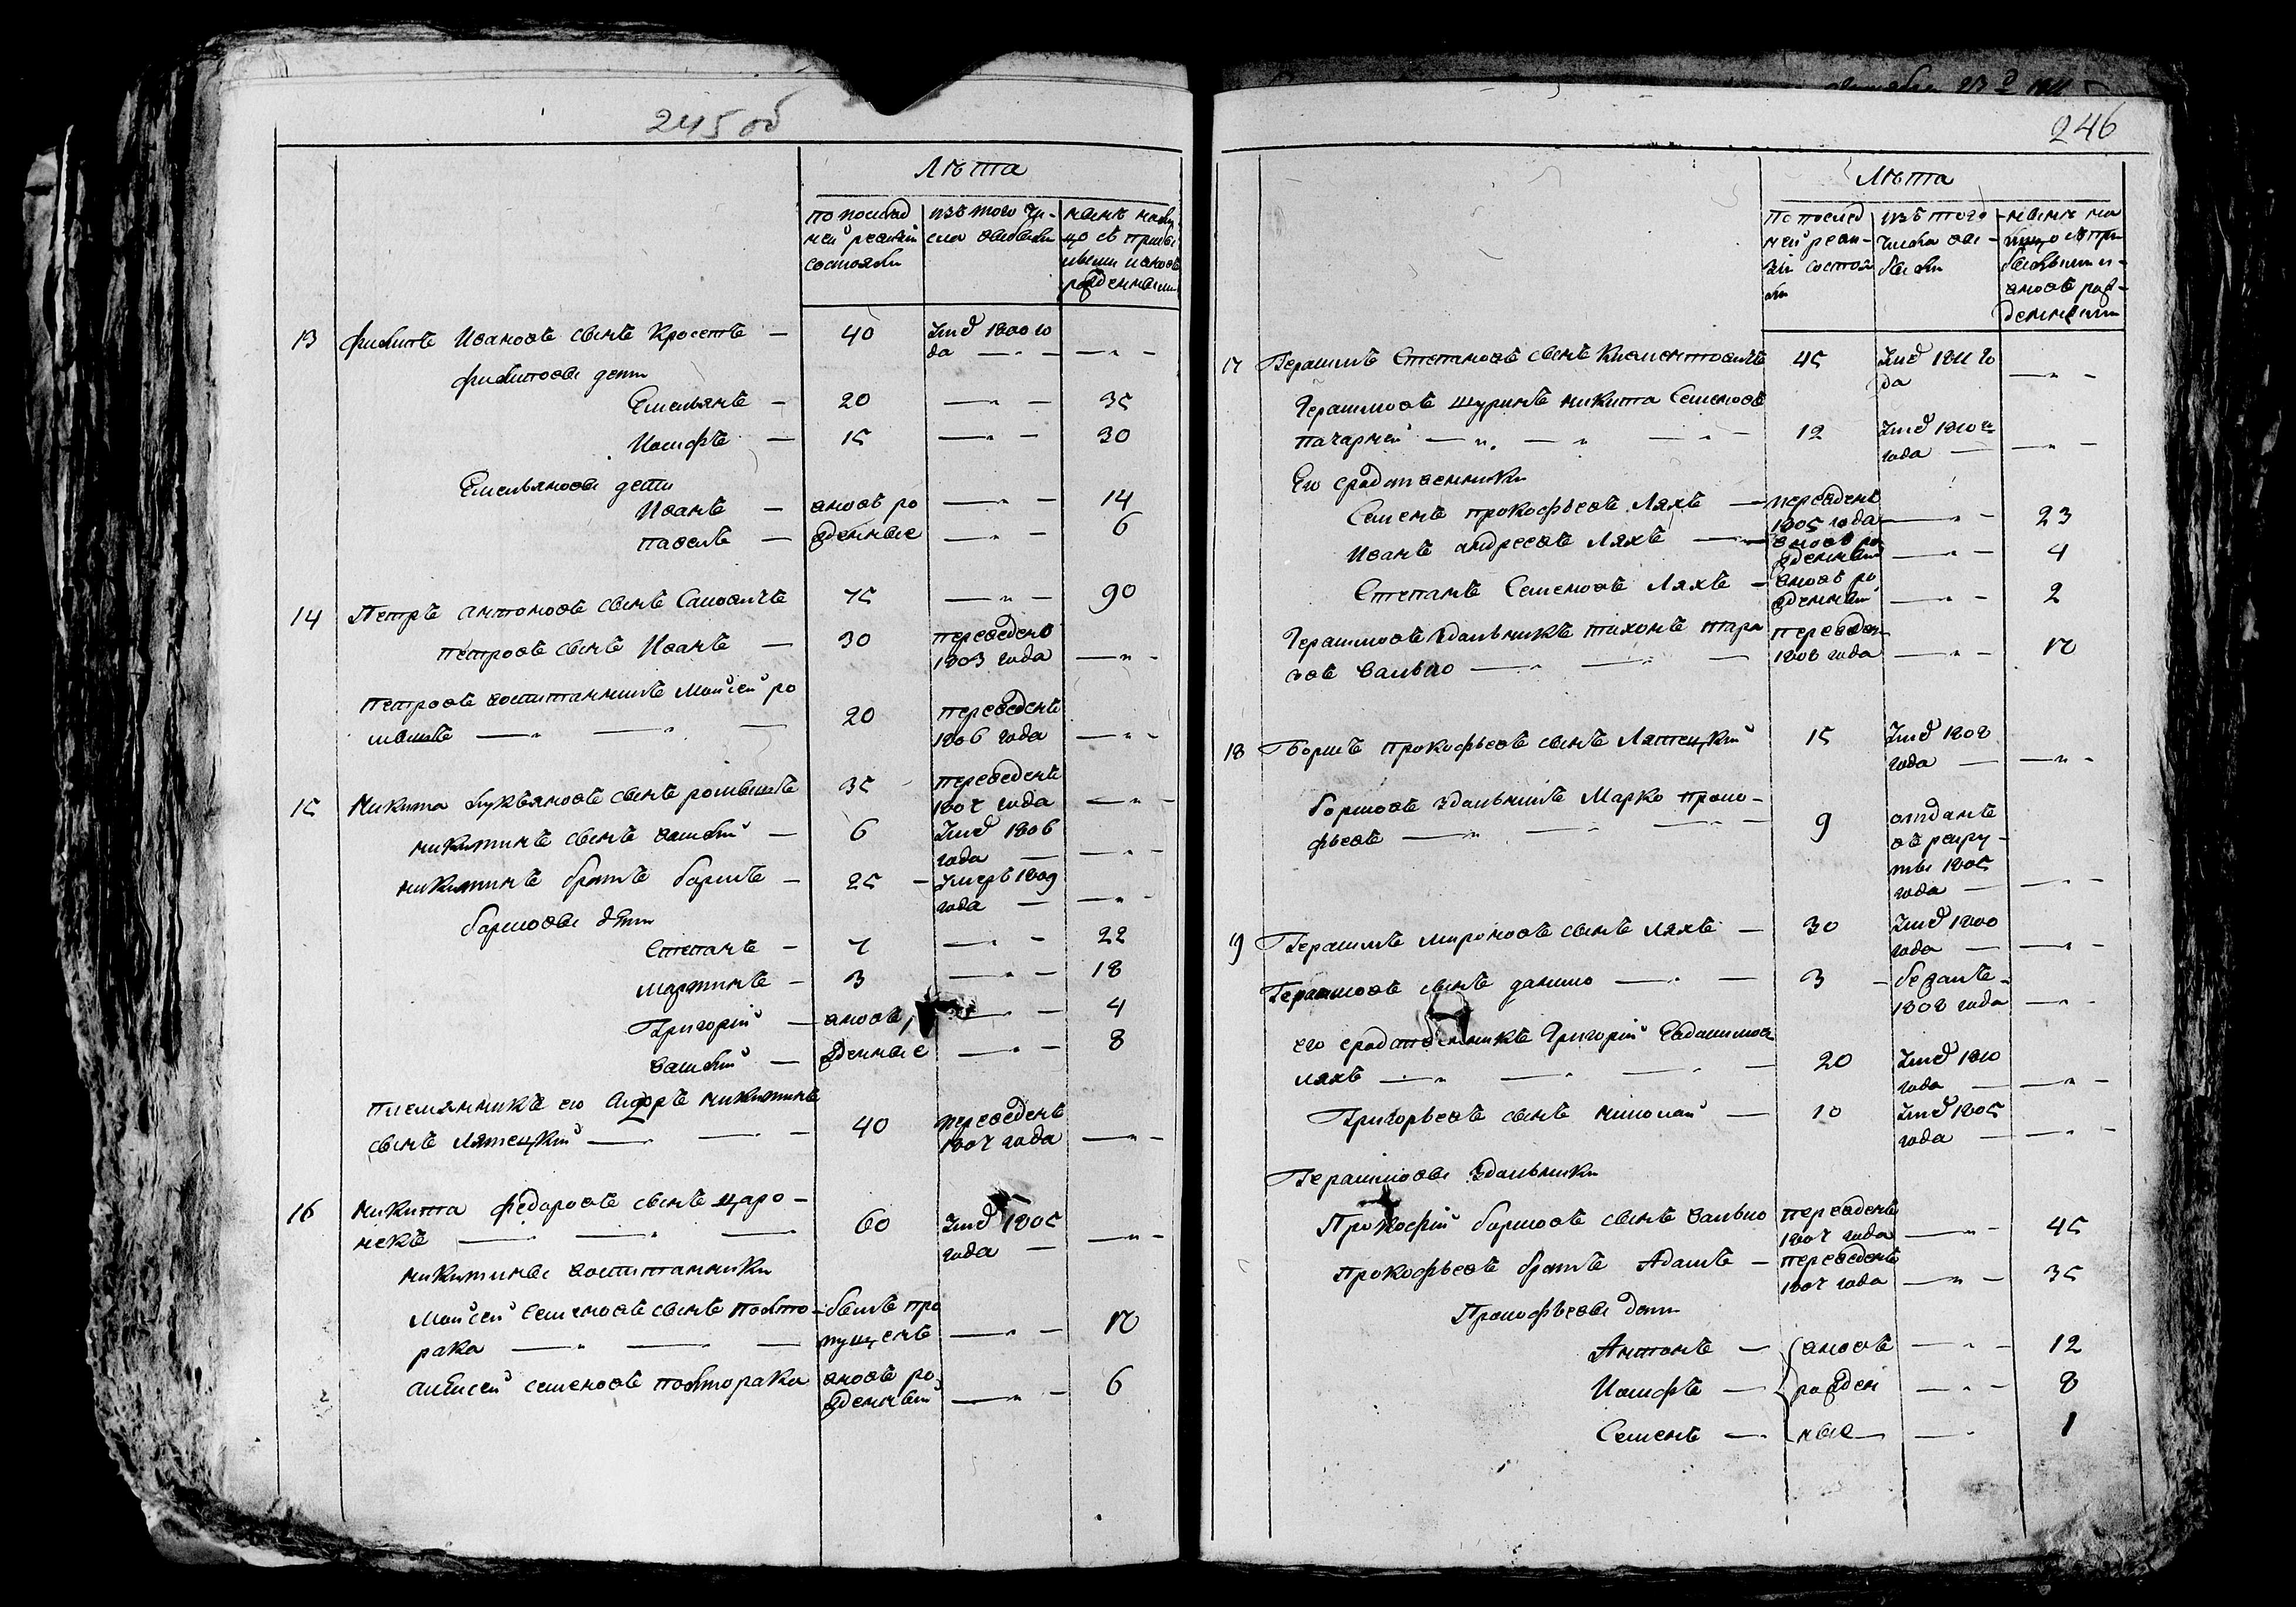 245 об
Лѣта
по послед
ней ревизіи
состояли
изъ того чи-
сла выбыли
нынѣ на ли-
цо съ прибы
лыми и вновь
рожденными
13 Филипъ Ивановъ сынъ Кросепъ — 40 Умер 1800 го
да — „ — — „ —
Филиповы дети
Емельянъ — 20 — „ — 35
Иосифъ — 15 — „ — 30
Емельяновы дети
Иванъ — вновь ро — „ — 14
Павелъ — жденные — „ — 6
14 Петръ Антоновъ сынъ 75 — „ — 90
Петровъ сынъ Иванъ — 30 переведенъ
1803 года — „ —
Петровъ воспитанникъ Мойсей ро
— „ — — 20 переведенъ
1806 года — „ —
15 Никита Лукьяновъ сынъ 35 переведенъ
1807 года — „ —
Никитинъ сынъ Василій — 6 Умер 1806
года — — „ —
Никитинъ братъ Борисъ — 25 — Умеръ 1809
года — — „ —
Борисовы дѣти
Степанъ — 7 — „ — 22
Мартинъ — 3 — „ — 18
Григорій — вновь, — „ — 4
Василій — жденные — „ — 8
Племянникъ его Сидоръ Никитинъ
сынъ Лятецкій — „ — 40 переведенъ
1807 года — „ —
16 Никита Федоровъ сынъ Царо-
некъ — „ — „ — 60 Умер 1805
года — — „ —
Никитины воспитанники
Мойсей Семеновъ сынъ Полто- былъ про
рака — „ — — пущенъ — „ — 10
Алексей Семеновъ Полторака вновь ро
жденный — „ — 6
246
Лѣта
По послед
ней реви-
зіи состоя
ли
изъ того
числа вы-
были
нынѣ на
лицо съ при
былыми и
вновь рож-
денными
17 Герасимъ Степановъ сынъ Климентовичъ 45 Умер 1811 го
да — „ —
Герасимовъ шуринъ Никита Семеновъ
Пачарней — „ — „ — „ — 12 Умер 1810го
года — — „ —
Его сродственники
Семенъ Прокофьевъ Ляхъ — переведенъ
1805 года — „ — 23
Иванъ Андреевъ Ляхъ — вновь ро
жденный — „ — 4
Степанъ Семеновъ Ляхъ — вновь ро
жденный — „ — 2
Герасимовъ здольникъ Тихонъ Тара
совъ Валько — „ — „ — переведен
1808 года — „ — 10
18 Борисъ Прокофьевъ сынъ Лятецкій 15 Умер 1808
года — — „ —
Борисовъ здольникъ Марко Проко-
фьевъ — „ — „ — „ — 9 отданъ
въ рекру-
ты 1805
года — — „ —
19 Герасимъ Мироновъ сынъ Ляхъ — 30 Умер 1800
года — — „ —
Герасимовъ сынъ Данило — „ — 3 — бежалъ
1808 года — „ —
его сродственникъ Григорій
Ляхъ — „ — „ — 20 Умер 1810
года — — „ —
Григорьевъ сынъ Николай — 10 Умер 1805
года — — „ —
Герасимовы здольники
Прокофій Борисовъ сынъ Валько переведенъ
1807 года — „ — 45
Прокофьевъ братъ Адамъ — переведенъ
1807 года — „ — 35
Прокофьевы дети
Антонъ — вновь — „ — 12
Иосифъ — рожден — „ — 8
Семенъ — ные — „ 1